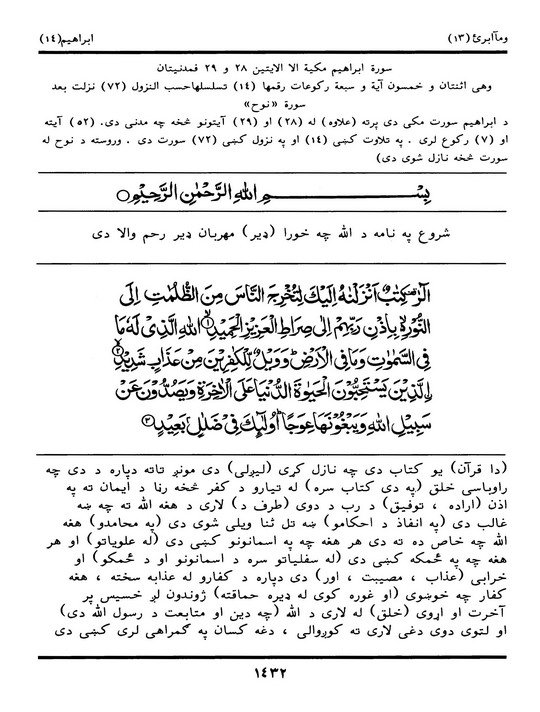 ومآابرئ (۱۳)
ابراهیم (۱۴)
سورة ابراهیم مکیة الا الایتین ۲۸ و ۲۹ فمدنیتان
وهی اثنتان و خمسون آیة و سبعة رکوعات رقمها (۱۴) تسلسلهاحسب النزول (۷۲) نزلت بعد
سورة «نوح»
د ابراهیم سورت مکی دی پرته (علاوه) له (۲۸) او (۲۹) آیتونو څخه چه مدنی دی. (۵۲) آیته
او (۷) رکوع لری . په تلاوت کښی (۱۴) او په نزول کښی (۷۲) سورت دی . وروسته د نوح له
سورت څخه نازل شوی دی)
بِسْمِ اللهِ الرَّحْمٰنِ الرَّحِيْمِ
شروع په نامه د الله چه خورا (ډیر) مهربان ډیر رحم والا دی
الٓرٰ كِتٰبٌ اَنْزَلْنٰهُ اِلَيْكَ لِتُخْرِجَ النَّاسَ مِنَ الظُّلُمٰتِ اِلَى
النُّوْرِ ەۙ بِاِذْنِ رَبِّهِمْ اِلٰى صِرَاطِ الْعَزِيْزِ الْحَمِيْدِ ۱ اللهِ الَّذِىْ لَهٗ مَا
فِى السَّمٰوٰتِ وَمَا فِى الْاَرْضِ ؕ وَوَيْلٌ لِّلْكٰفِرِيْنَ مِنْ عَذَابٍ شَدِيْدِ ۲
اِلَّذِيْنَ يَسْتَحِبُّوْنَ الْحَيٰوةَ الدُّنْيَا عَلَى الْاٰخِرَةِ وَيَصُدُّوْنَ عَنْ
سَبِيْلِ اللهِ وَيَبْغُوْنَهَا عِوَجًا ؕ اُولٰٓئِكَ فِىْ ضَلٰلٍۭ بَعِيْدٍ ۳
(دا قرآن) یو کتاب دی چه نازل کړی (لیږلی) دی مونږ تاته دپاره د دی چه
راوباسی خلق (په دی کتاب سره) له تیارو د کفر څخه رڼا د ایمان ته په
اذن (اراده ، توفیق) د رب د دوی (طرف د) لاری د هغه الله ته چه ښه
غالب دی (په انفاذ د احکامو) ښه تل ثنا ویلی شوی دی (په محامدو) هغه
الله چه خاص ده ته دی هر هغه چه په اسمانونو کښی دی (له علویاتو) او هر
هغه چه په ځمکه کښی دی (له سفلیاتو سره د اسمانونو او د ځمکو) او
خرابی (عذاب ، مصیبت ، اور) دی دپاره د کفارو له عذابه سخته ، هغه
کفار چه خوښوی (او غوره کوی له ډیره حماقته) ژوندون لږ خسیس پر
آخرت او اړوی (خلق) له لاری د الله (چه دین او متابعت د رسول الله دی)
او لتوی دوی دغی لاری ته کوږوالی ، دغه کسان په گمراهی لری کښی دی
۱۴۳۲